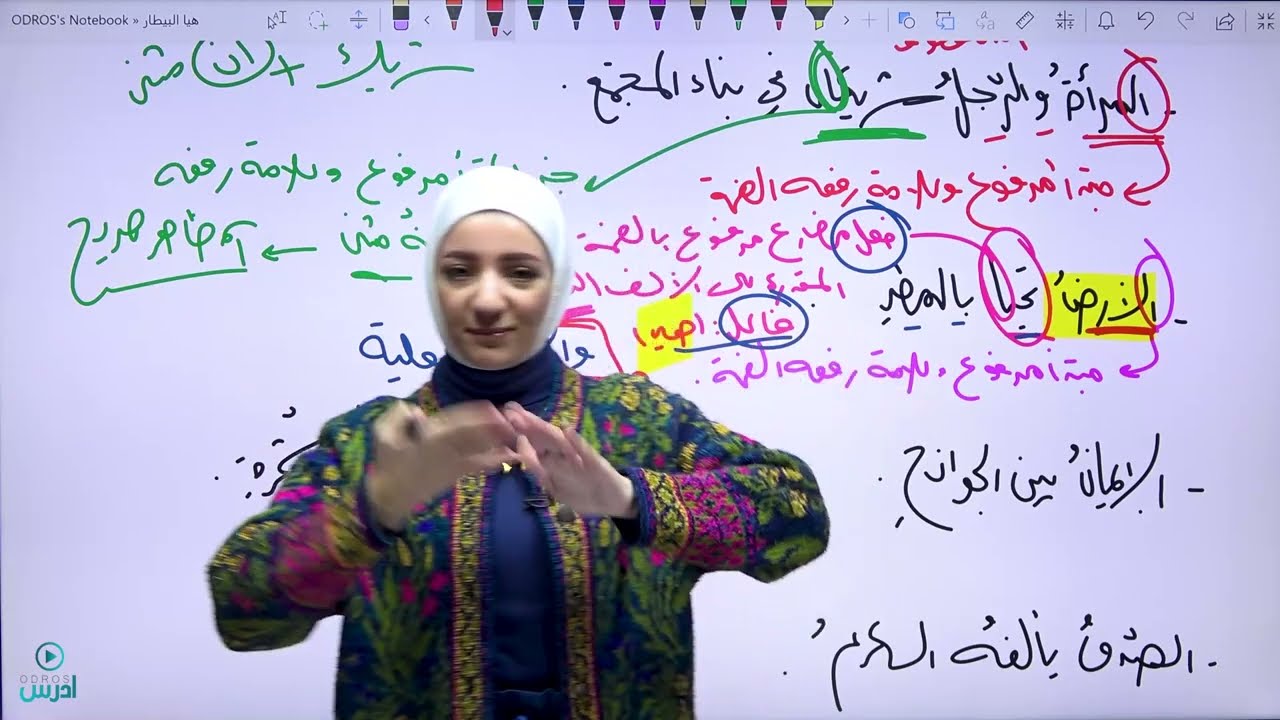 هيا البيطار » ODROS's Notebook
شريك + ان مثنى
- المرأةُ والرّجلُ شريكان في بناء المجتمع .
مبتدأ مرفوع وعلامة رفعه الضمة
مرفوع وعلامة رفعه
مثنى ← اسم ظاهر صريح
فعل مضارع مرفوع بالضمة
المقدرة على الألف
- الأرضُ تحيا بالمطرِ
فاعل : (هي)
مبتدأ مرفوع وعلامة رفعه الضمة .
- الإيمانُ بين الجوانحِ .
- الصّدقُ يألفُه الكرامُ .
ODROS
ادرس